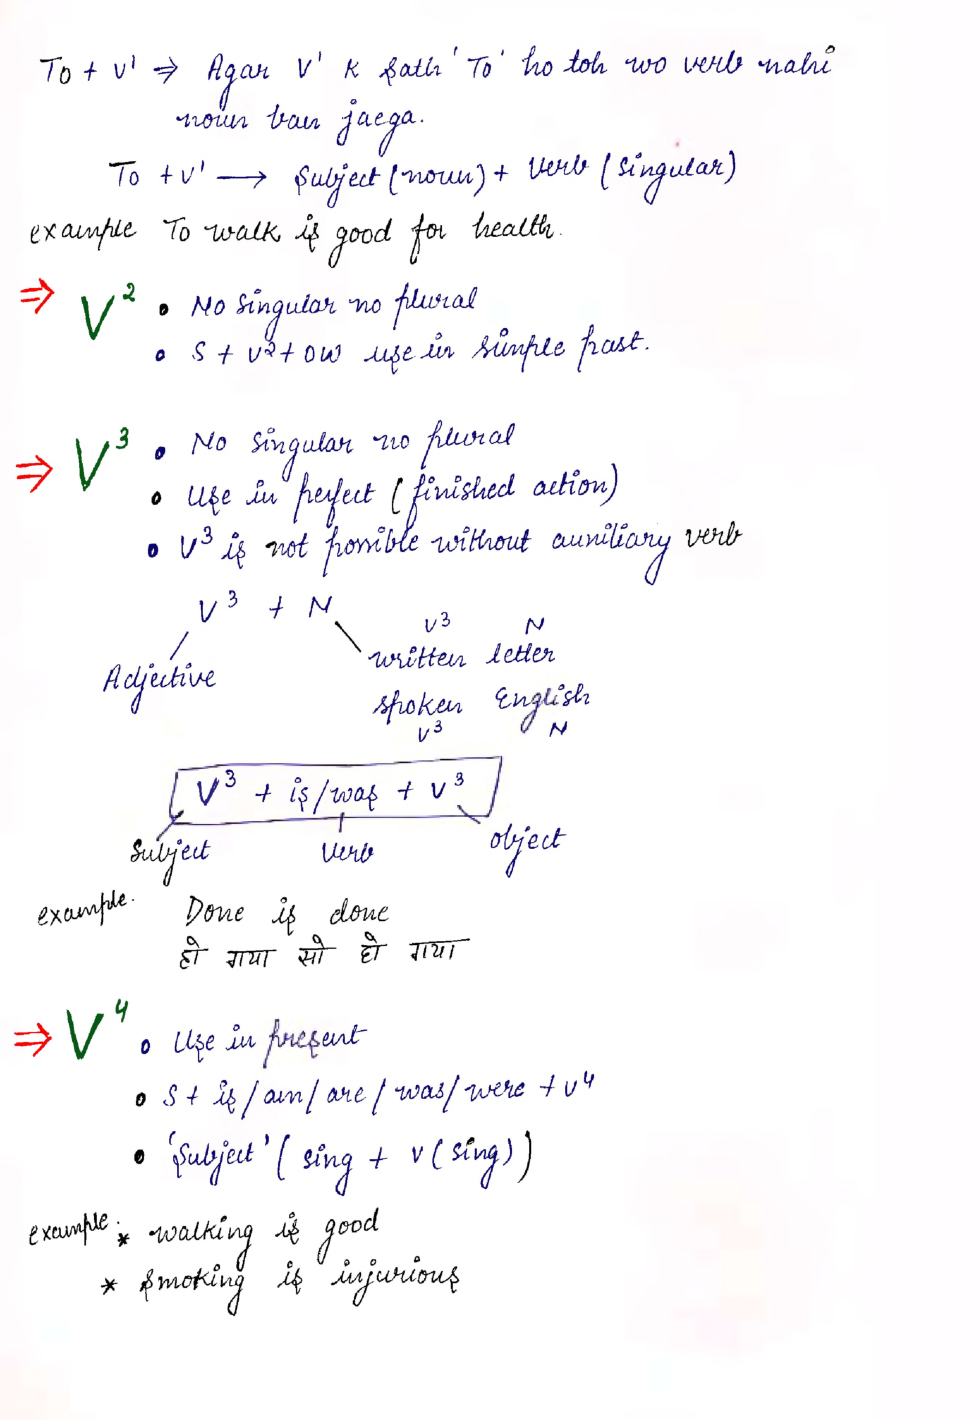 To + V¹ ⇒ Agar V¹ K sath 'To' ho toh wo verb nahi
noun ban jaega.
To + V¹ ⟶ Subject (noun) + Verb (Singular)
example To walk is good for health.
⇒ V² • No Singular no plural
• S + V² + OW use in simple past.
⇒ V³ • No Singular no plural
• Use in perfect (finished action)
• V³ is not possible without auxiliary verb
V³ + N
V³ N
Adjective written letter
spoken English
V³ N
V³ + is/was + V³
Subject Verb object
example. Done is done
हो गया सो हो गया
⇒ V⁴ • Use in present
• S + is/am/are/was/were + V⁴
• 'Subject' (sing + V (sing))
example. * walking is good
* Smoking is injurious